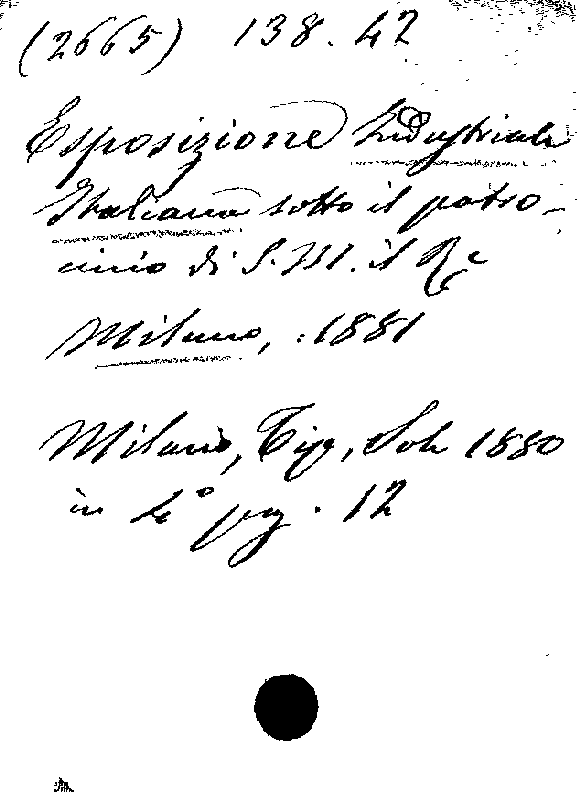 (2665) 138.42
Esposizione Industriale
Italiana sotto il patro-
cinio di S.M. il Re
Milano, 1881
Milano, Tip, Sole 1880
in 4° pag. 12